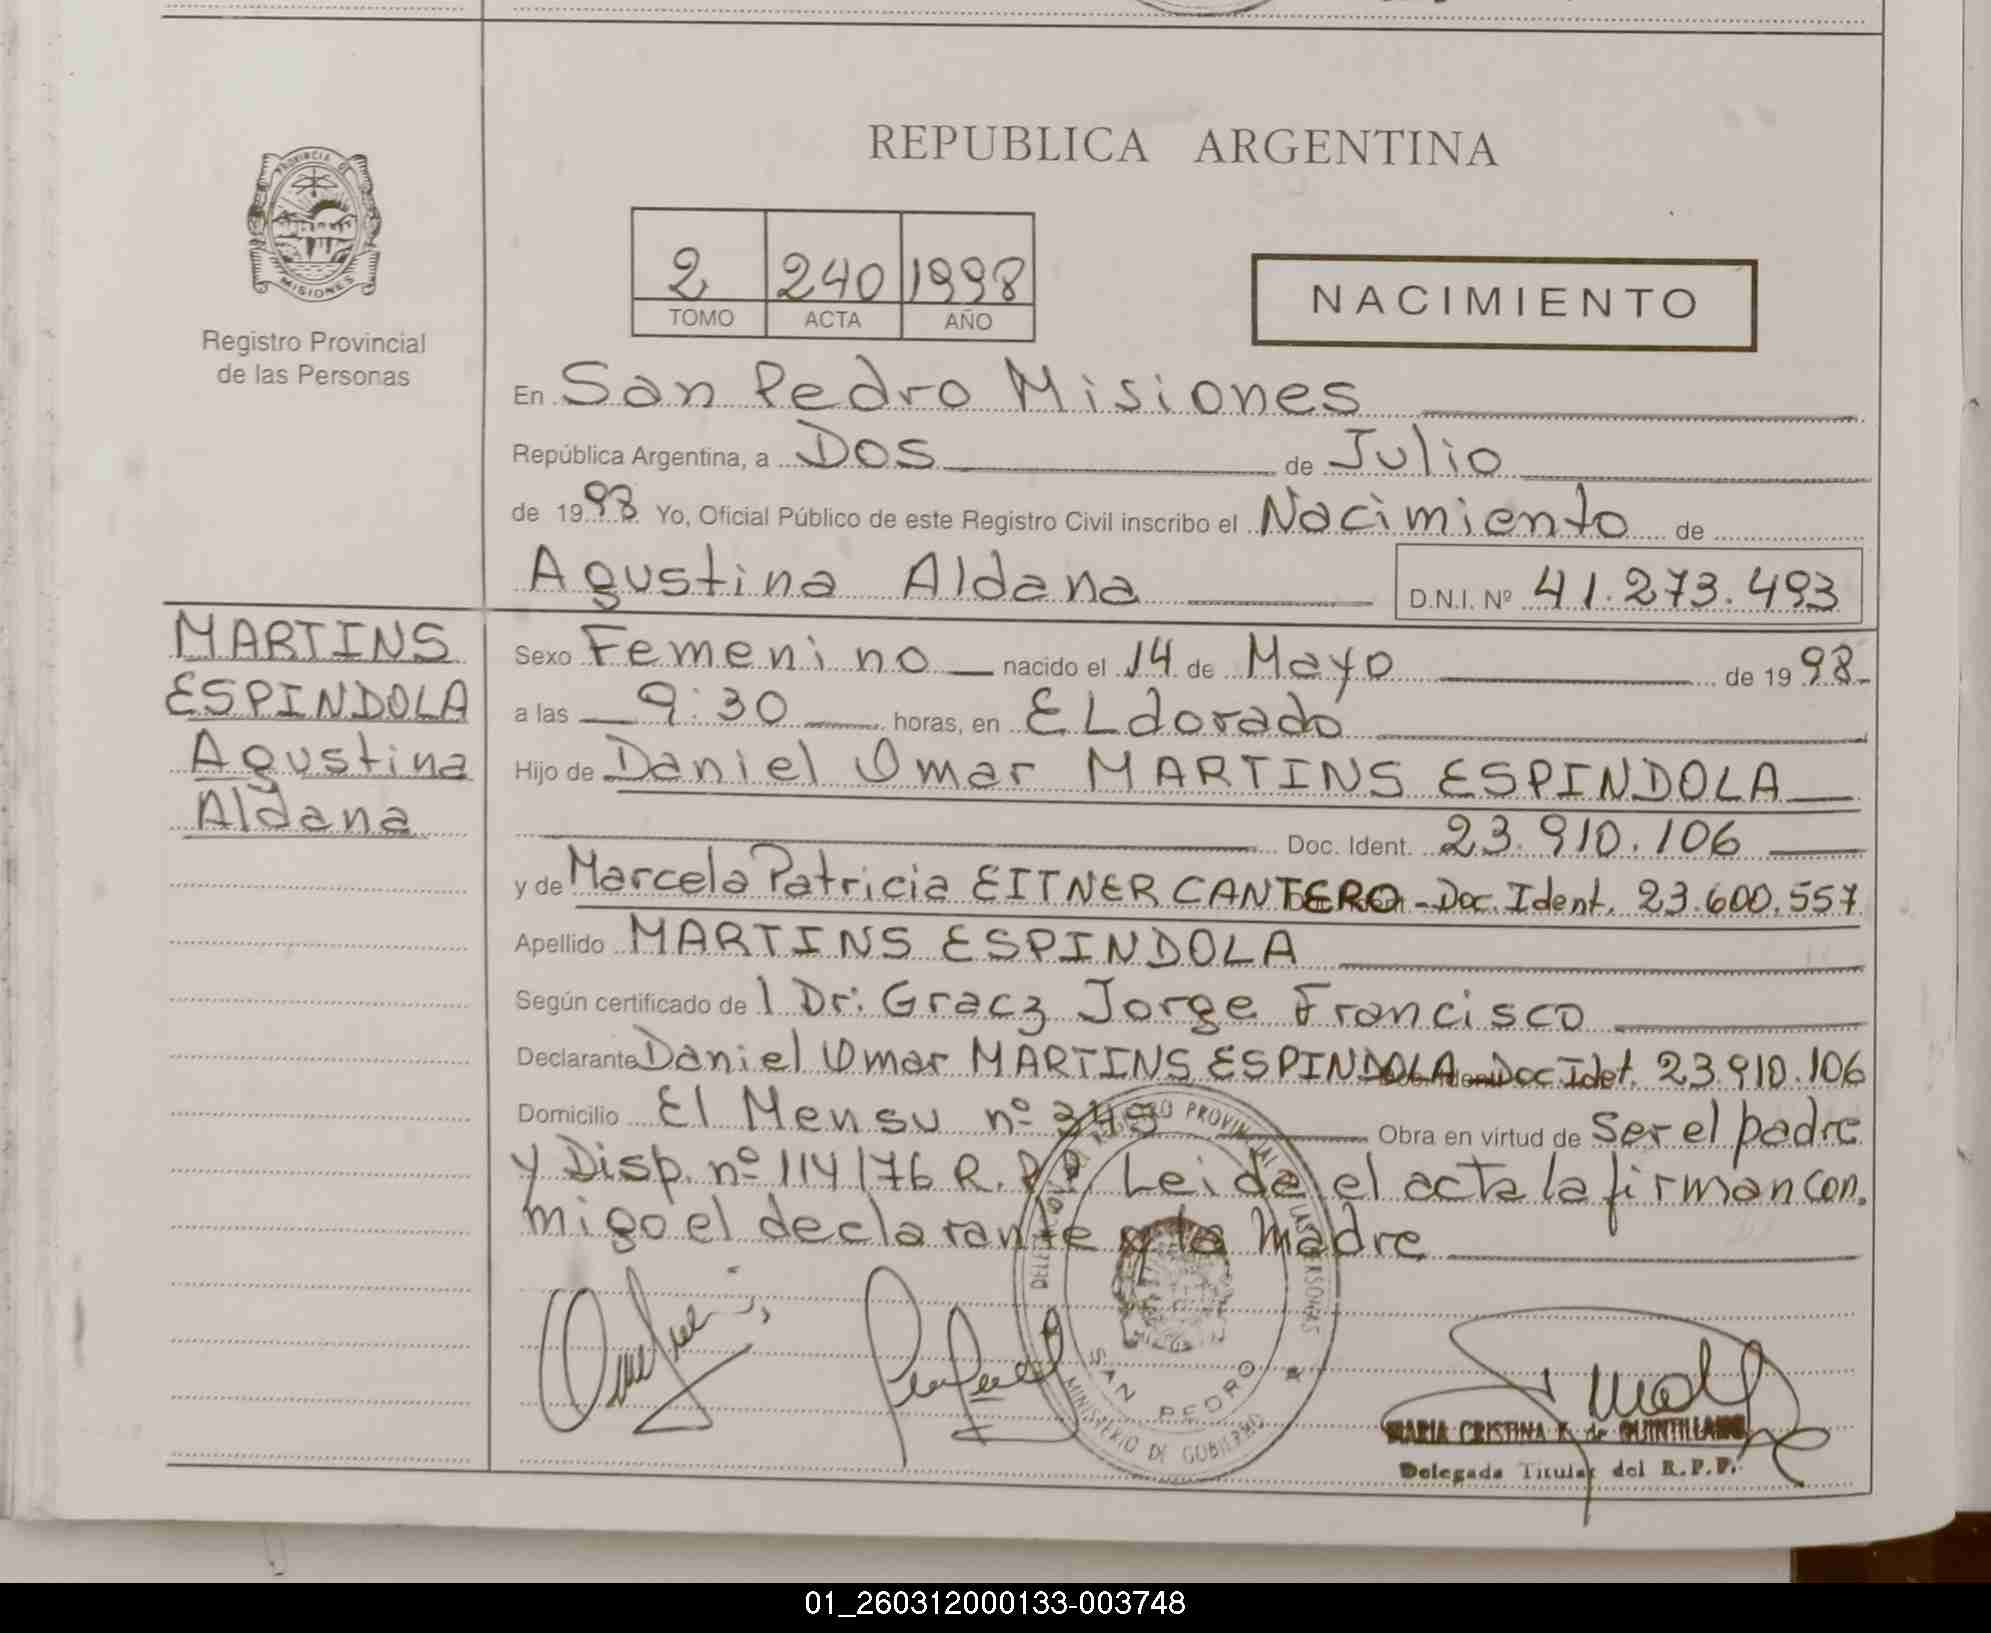 REPUBLICA ARGENTINA
PROVINCIA DE
MISIONES
Registro Provincial
de las Personas
2 240 1998
TOMO ACTA AÑO
NACIMIENTO
En San Pedro Misiones
República Argentina, a Dos de Julio
de 1998 Yo, Oficial Público de este Registro Civil inscribo el Nacimiento de
Agustina Aldana D.N.I. Nº 41.273.493
MARTINS
ESPINDOLA
Agustina
Aldana
Sexo Femenino nacido el 14 de Mayo de 1998
a las 9:30 horas, en ELdorado
Hijo de Daniel Omar MARTINS ESPINDOLA
Doc. Ident. 23.910.106
y de Marcela Patricia EITNER CANTERO - Doc. Ident. 23.600.557
Apellido MARTINS ESPINDOLA
Según certificado de l Dr: Gracz Jorge Francisco
Declarante Daniel Omar MARTINS ESPINDOLA Doc Idet. 23.910.106
Domicilio El Mensu nº 345 Obra en virtud de ser el padre
y Disp. nº 114/76 R.P.P. Leida el acta la firman con.
migo el declarante y la madre
DELEGACION REGISTRO PROVINCIAL LAS PERSONAS
SAN PEDRO
MINISTERIO DE GOBIERNO
MARIA CRISTINA F. de QUINTILLANO
Delegada Titular del R.P.P.
01_260312000133-003748